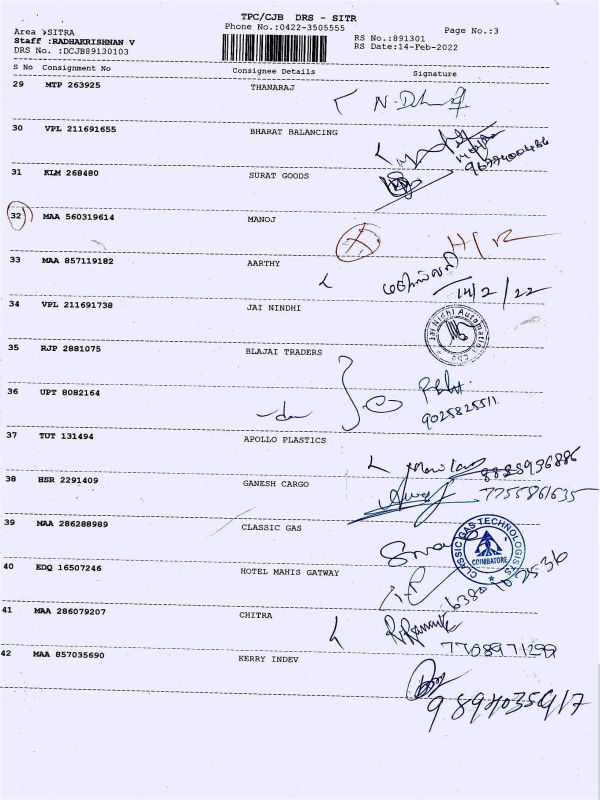 TPC/CJB DRS - SITR
Phone No.:0422-3505555
Page No.:3
Area :SITRA
Staff :RADHAKRISHNAN V
DRS No. :DCJB89130103
RS No.:891301
RS Date:14-Feb-2022
S No Consignment No Consignee Details Signature
29 MTP 263925 THANARAJ
30 VPL 211691655 BHARAT BALANCING
31 KLM 268480 SURAT GOODS
32 MAA 560319614 MANOJ
33 MAA 857119182 AARTHY
14/2/22
34 VPL 211691738 JAI NINDHI
Jai Nidhi Automation
35 RJP 2881075 BLAJAI TRADERS
36 UPT 8082164
9025825511
37 TUT 131494 APOLLO PLASTICS
38 HSR 2291409 GANESH CARGO
7755861635
39 MAA 286288989 CLASSIC GAS
CLASSIC GAS TECHNOLOGISTS
COIMBATORE
40 EDQ 16507246 HOTEL MAHIS GATWAY
41 MAA 286079207 CHITRA
7708971299
42 MAA 857035690 KERRY INDEV